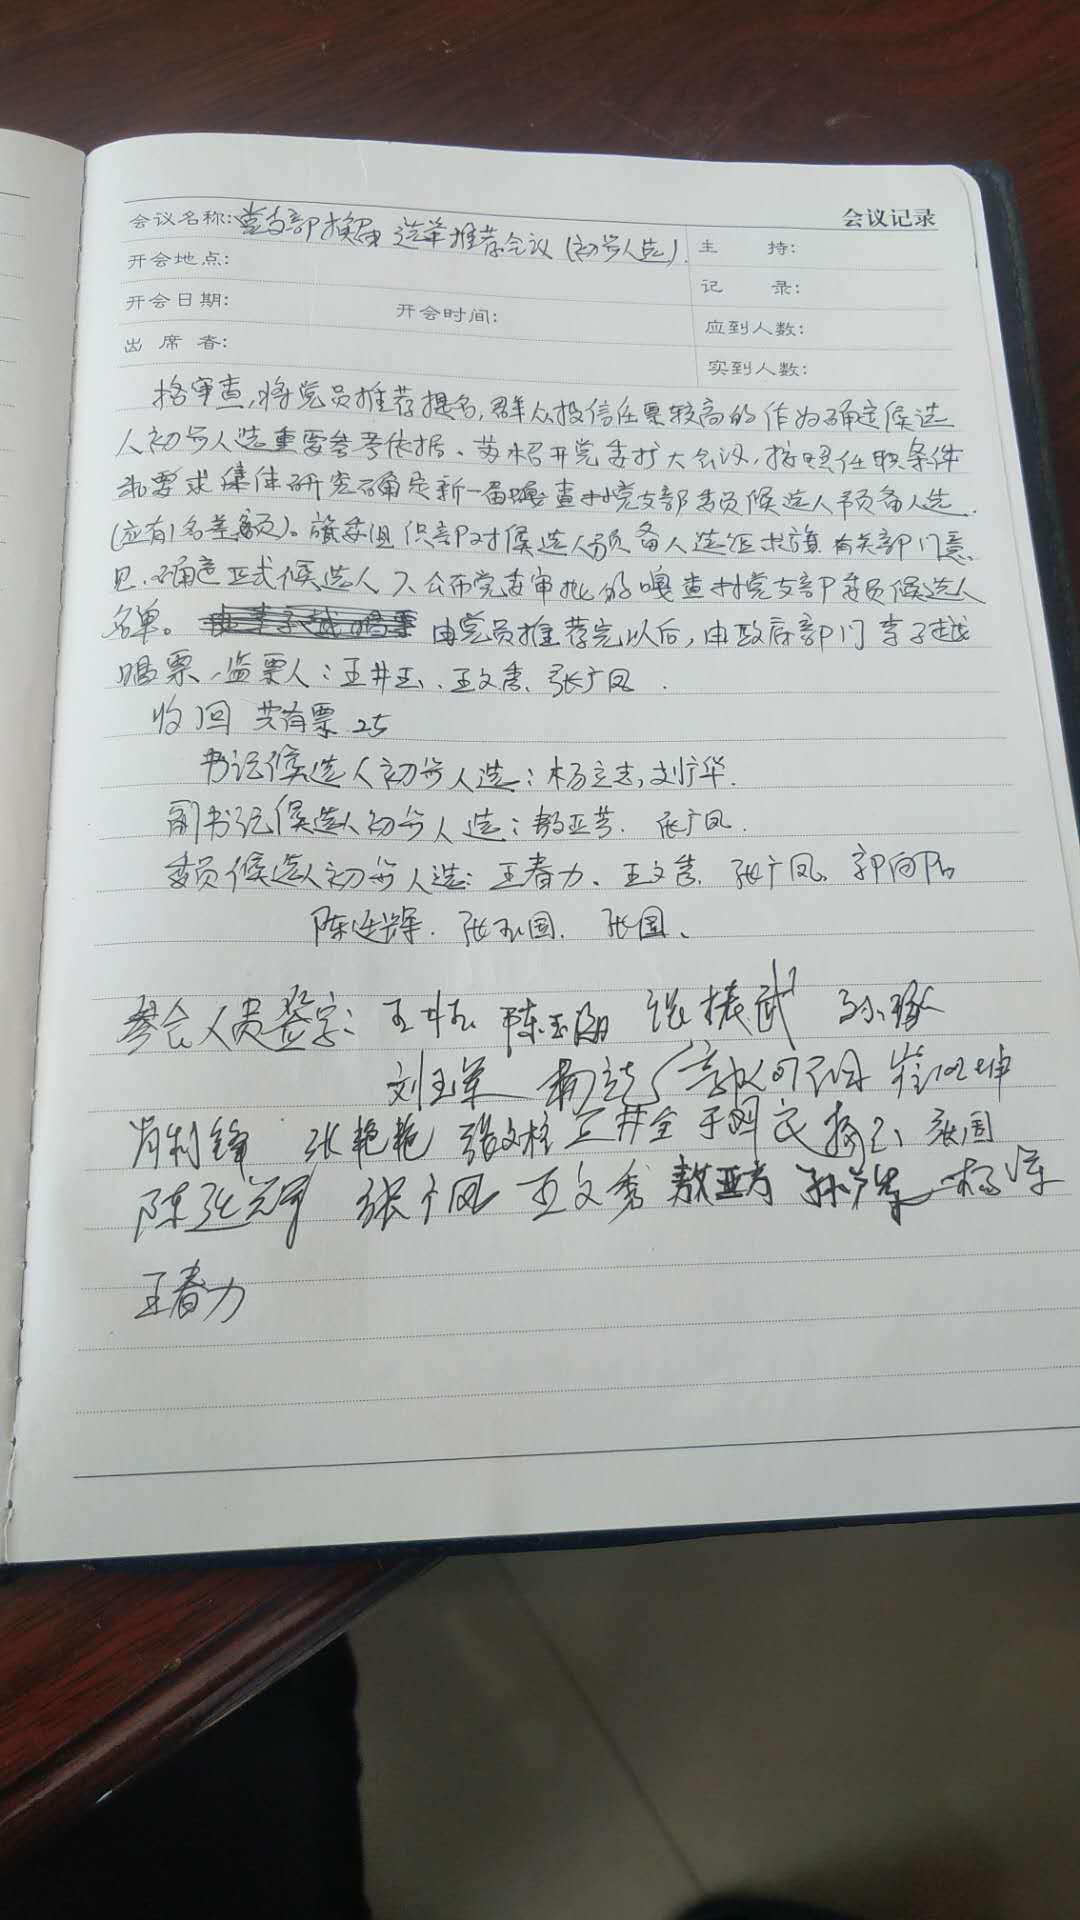 会议记录
会议名称:党支部换届选举推荐会议(初步人选).
主 持:
开会地点:
记 录:
开会日期: 开会时间:
应到人数:
出 席 者:
实到人数:
格审查,将党员推荐提名,群众投信任票较高的作为确定候选
人初步人选重要参考依据、苏木召开党委扩大会议,按照任职条件
和要求集体研究确定新一届嘎查村党支部委员候选人预备人选.
(应有1名差额)。旗委组织部对候选人预备人选征求旗有关部门意
见.确定正式候选人 公布党委审批的嘎查村党支部委员候选人
名单。 由党员推荐完以后,由政府部门李子越
唱票,监票人:王井玉、王文秀、张广凤.
收回 共有票25
书记候选人初步人选:杨立志,刘广华.
副书记候选人初步人选:敖亚芳. 张广凤.
委员候选人初步人选:王春力、王文秀、张广凤、郭向阳
陈延辉. 张玉国. 张国、
参会人员签字: 王井玉 陈玉 张振武 孙琢
刘玉军 杨立志 崔 坤
肖利锋 张艳艳 张文柱 王井全 于 张国
陈延辉 张广凤 王文秀 敖亚芳 孙 杨
王春力